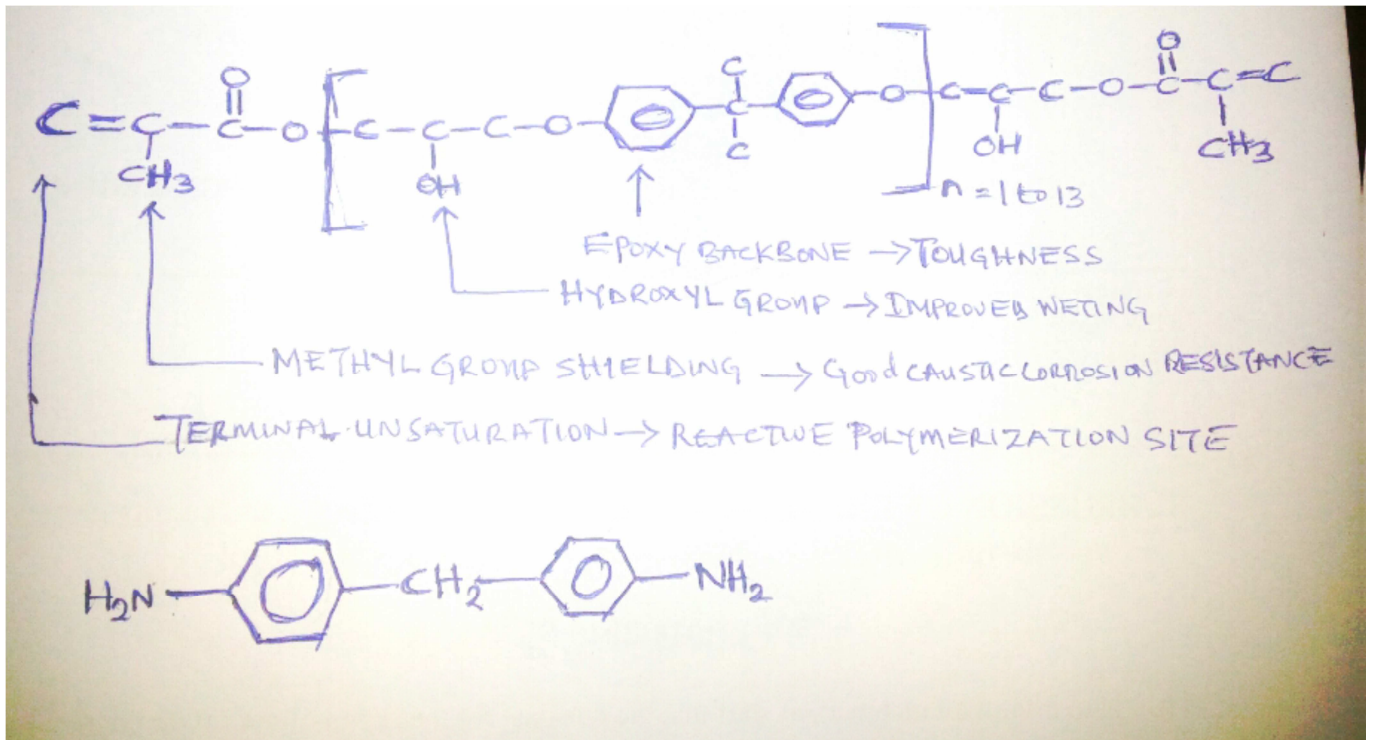 O O
C=C-C-O-[C-C-C-O-⌬-C-⌬-O-]C=C-C-O-C-C=C
C C
CH3 OH OH CH3
n=1 to 13
EPOXY BACKBONE → TOUGHNESS
HYDROXYL GROUP → IMPROVED WETING
METHYL GROUP SHIELDING → Good CAUSTIC CORROSION RESISTANCE
TERMINAL UNSATURATION → REACTIVE POLYMERIZATION SITE
H2N-⌬-CH2-⌬-NH2